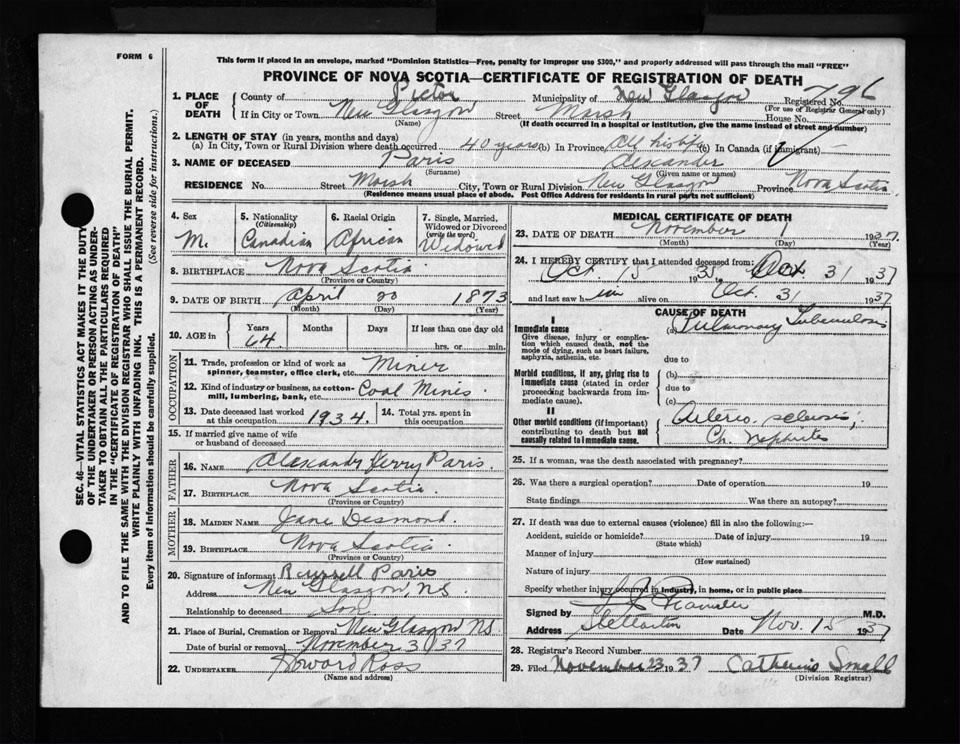 FORM 6
This form if placed in an envelope, marked "Dominion Statistics—Free, penalty for improper use $300," and properly addressed will pass through the mail "FREE"
PROVINCE OF NOVA SCOTIA—CERTIFICATE OF REGISTRATION OF DEATH
1. PLACE OF DEATH
County of Pictou Municipality of New Glasgow Registered No. 796
(For use of Registrar General only)
If in City or Town New Glasgow Street Marsh House No.
(Name) (If death occurred in a hospital or institution, give the name instead of street and number)
2. LENGTH OF STAY (in years, months and days)
(a) In City, Town or Rural Division where death occurred 40 years (b) In Province All his life (c) In Canada (if immigrant) —
3. NAME OF DECEASED Paris Alexander
(Surname) (Given name or names)
RESIDENCE No. Street Marsh City, Town or Rural Division New Glasgow Province Nova Scotia
(Residence means usual place of abode. Post Office Address for residents in rural parts not sufficient)
4. Sex
M.
5. Nationality
(Citizenship)
Canadian
6. Racial Origin
African
7. Single, Married, Widowed or Divorced
(write the word)
Widowed
8. BIRTHPLACE Nova Scotia
(Province or Country)
9. DATE OF BIRTH April 20 1873
(Month) (Day) (Year)
10. AGE in
Years Months Days If less than one day old
64. hrs. or min.
OCCUPATION
11. Trade, profession or kind of work as spinner, teamster, office clerk, etc. Miner
12. Kind of industry or business, as cotton-mill, lumbering, bank, etc. Coal Mines
13. Date deceased last worked at this occupation 1934.
14. Total yrs. spent in this occupation
15. If married give name of wife or husband of deceased
FATHER
16. NAME Alexandr Jerry Paris.
17. BIRTHPLACE Nova Scotia
(Province or Country)
MOTHER
18. MAIDEN NAME Jane Desmond.
19. BIRTHPLACE Nova Scotia
(Province or Country)
20. Signature of informant Russell Paris
Address New Glasgow, N.S.
Relationship to deceased Son
21. Place of Burial, Cremation or Removal New Glasgow NS
Date of burial or removal November 3/37
22. UNDERTAKER Howard Ross
(Name and address)
MEDICAL CERTIFICATE OF DEATH
23. DATE OF DEATH November 1 1937.
(Month) (Day) (Year)
24. I HEREBY CERTIFY that I attended deceased from:
Oct. 15 1935 Oct. 31 1937
and last saw him alive on Oct. 31 1937
CAUSE OF DEATH
I
Immediate cause (a) Pulmonary Tuberculosis
Give disease, injury or complication which caused death, not the mode of dying, such as heart failure, asphyxia, asthenia, etc.
due to
Morbid conditions, if any, giving rise to immediate cause (stated in order proceeding backwards from immediate cause).
(b)
due to
(c)
II
Other morbid conditions (if important) contributing to death but not causally related to immediate cause.
Arterio. sclerosis;
Ch. Nephritis
25. If a woman, was the death associated with pregnancy?
26. Was there a surgical operation? Date of operation 19
State findings Was there an autopsy?
27. If death was due to external causes (violence) fill in also the following:—
Accident, suicide or homicide? Date of injury 19
(State which)
Manner of injury
(How sustained)
Nature of injury
Specify whether injury occurred in industry, in home, or in public place
Signed by M.D.
Address Stellarton Date Nov. 15 1937
28. Registrar's Record Number
29. Filed November 23 1937 Catherine Small
(Division Registrar)
SEC. 46—VITAL STATISTICS ACT MAKES IT THE DUTY
OF THE UNDERTAKER OR PERSON ACTING AS UNDER-
TAKER TO OBTAIN ALL THE PARTICULARS REQUIRED
IN THE "CERTIFICATE OF REGISTRATION OF DEATH"
AND TO FILE THE SAME WITH THE DIVISION REGISTRAR WHO SHALL ISSUE THE BURIAL PERMIT.
WRITE PLAINLY WITH UNFADING INK. THIS IS A PERMANENT RECORD.
Every item of information should be carefully supplied. (See reverse side for instructions.)